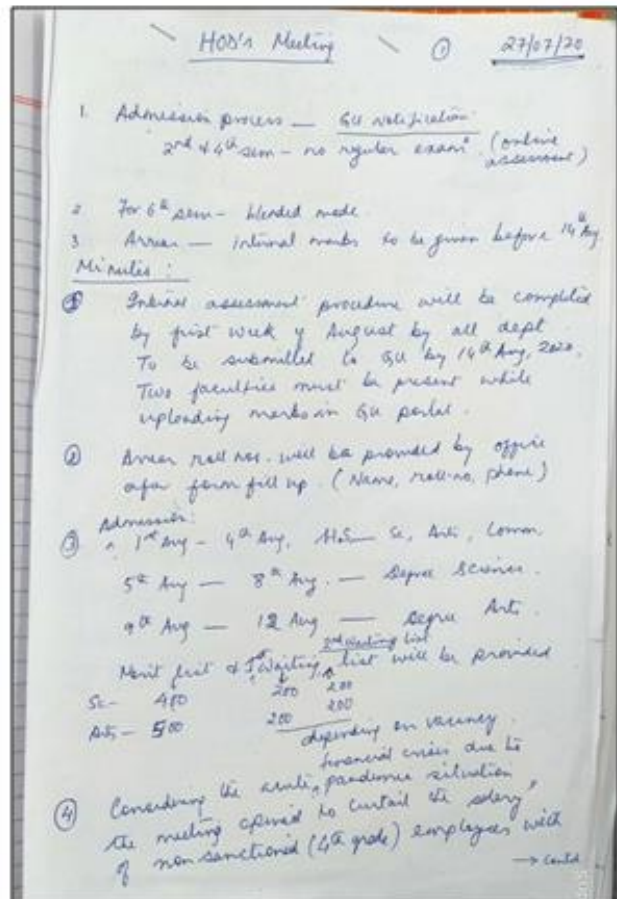 HOD's Meeting ① 27/07/20
1. Admission process — GU notification
2nd & 4th sem - no regular exam (online
assessment)
2 For 6th sem - blended mode.
3 Arrear — internal marks to be given before 14th Aug.
Minutes :
① Internal assessment procedure will be completed
by first week of August by all dept
To be submitted to GU by 14th Aug, 2020.
Two faculties must be present while
uploading marks in GU portal.
② Arrear roll nos. will be provided by office
after form fill up. (Name, roll-no, phone)
Admission:
③ 1st Aug - 4th Aug, H.S — Sc, Arts, Comm
5th Aug — 8th Aug. — Degree Science.
9th Aug — 12 Aug — Degree Arts.
2nd waiting list
Merit list & 1st Waiting list will be provided
Sc - 400 200 200
Arts - 500 200 200
depending on vacancy.
financial crises due to
④ Considering the acute, pandemic situation
the meeting opined to curtail the salary,
of non sanctioned (4th grade) employees with
→ contd